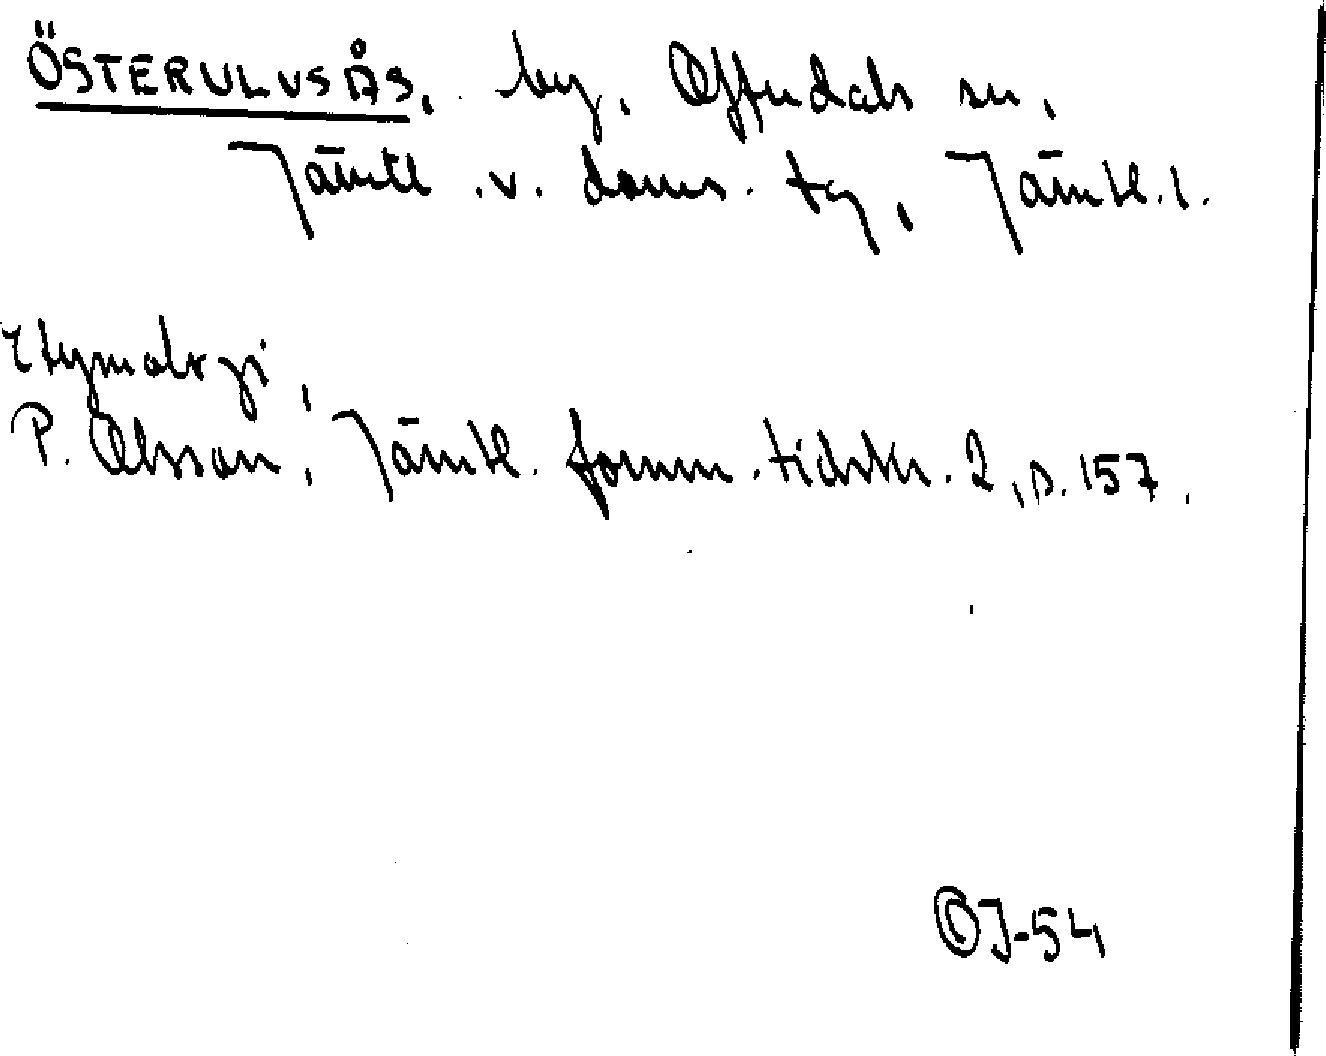 ÖSTERULVSÅS, by, Offerdals sn,
Jämtl. v. doms. tg, Jämtl. l.
Etymologi,
P. Olsson, Jämtl. fornm. tidskr. 2, s. 157.
©J-54